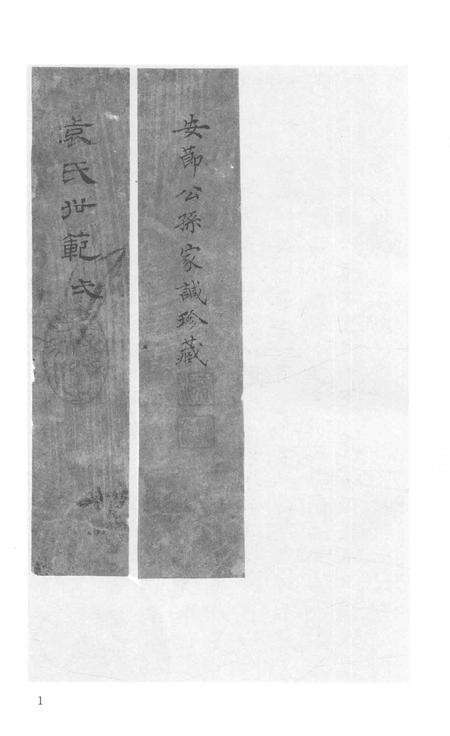 安節公孫家誠珍藏
袁氏世範弍
1